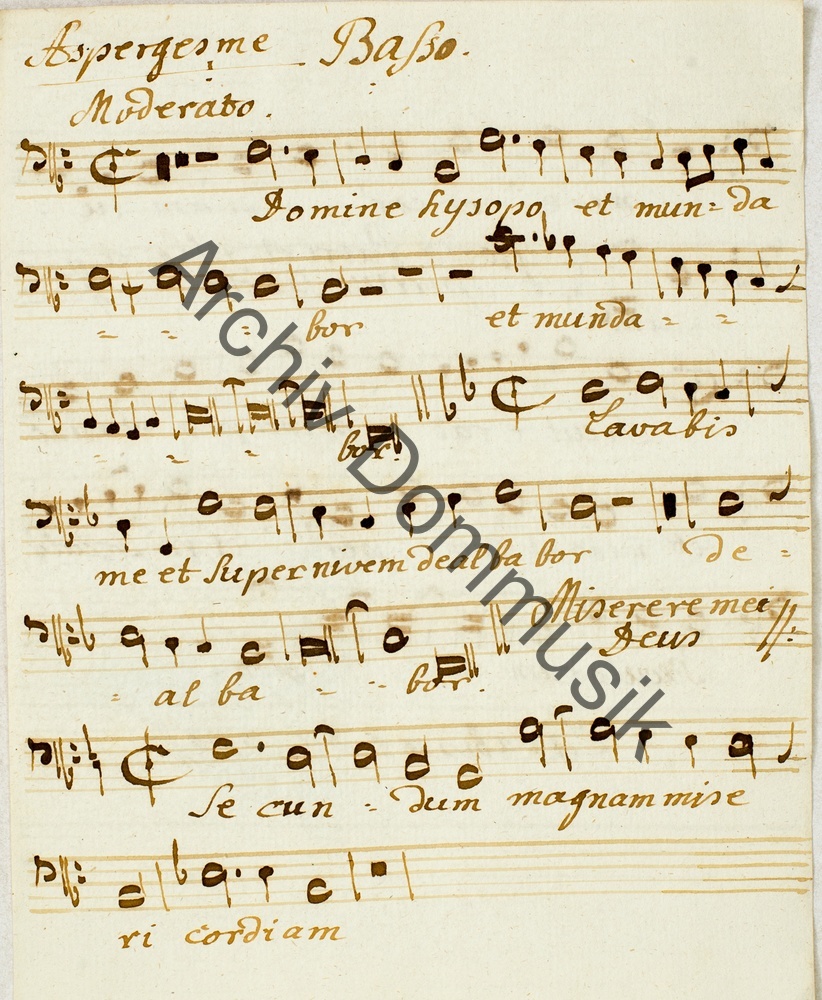 Asperges me Basso.
Moderato.
Domine hysopo et mun= da
= = = bor et munda = =
= = = bor. Lavabis
me et super nivem dealba bor de =
= al ba = = bor. Miserere mei
Deus
Se cun = dum magnam mise
ri cordiam
Archiv Dommusik